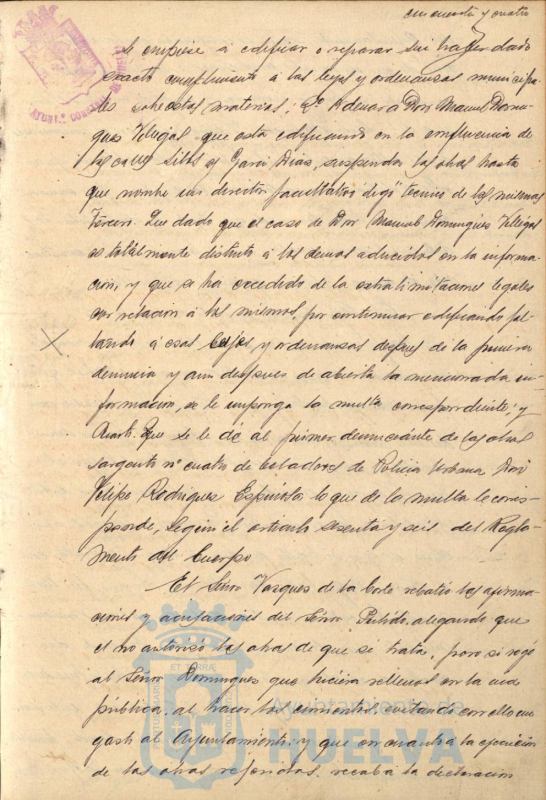 cincuenta y cuatro
se empiese á edificar o reparar sin haber dado
exacto cumplimiento á las leyes y ordenanzas municipa-
les sobre estas materias; 2º Ordenar a Don Manuel Domin-
gues Villegas, que esta edificando en la confluencia de
las calles Silos y Garci Dias, suspenda las obras hasta
que nombre un director facultativo ó técnico de las mismas
Tercero. Que dado que el caso de Don Manuel Domingues Villegas
es totalmente distinto á los demas aducidos en la informa-
cion, y que se ha excedido de las extralimitaciones legales
con relacion á los mismos, por continuar edificando fal-
tando á esas leyes y ordenanzas despues de la primera
denuncia y aun despues de abierta la mencionada in-
formacion, se le imponga la multa correspondiente; y
Cuarto. Que se le dé al primer denunciante de las obras
sargento nº cuatro de celadores de Policia Urbana Don
Felipe Rodrigues Espinosa lo que de la multa le corres-
ponde, según el articulo sesenta y seis del Regla-
mento del Cuerpo
El Señor Vasques de la Corte rebatió las afirma-
ciones y acusaciones del Señor Pulido, alegando que
el no autorizó las obras de que se trata, pero si rogó
al Señor Domingues que hiciera rellenos en la via
pública, al hacer los cimientos, evitando con ello un
gasto al Ayuntamiento; y que en cuanto a la ejecucion
de las obras referidas, recaba la declaracion
Ayuntamiento de
HUELVA